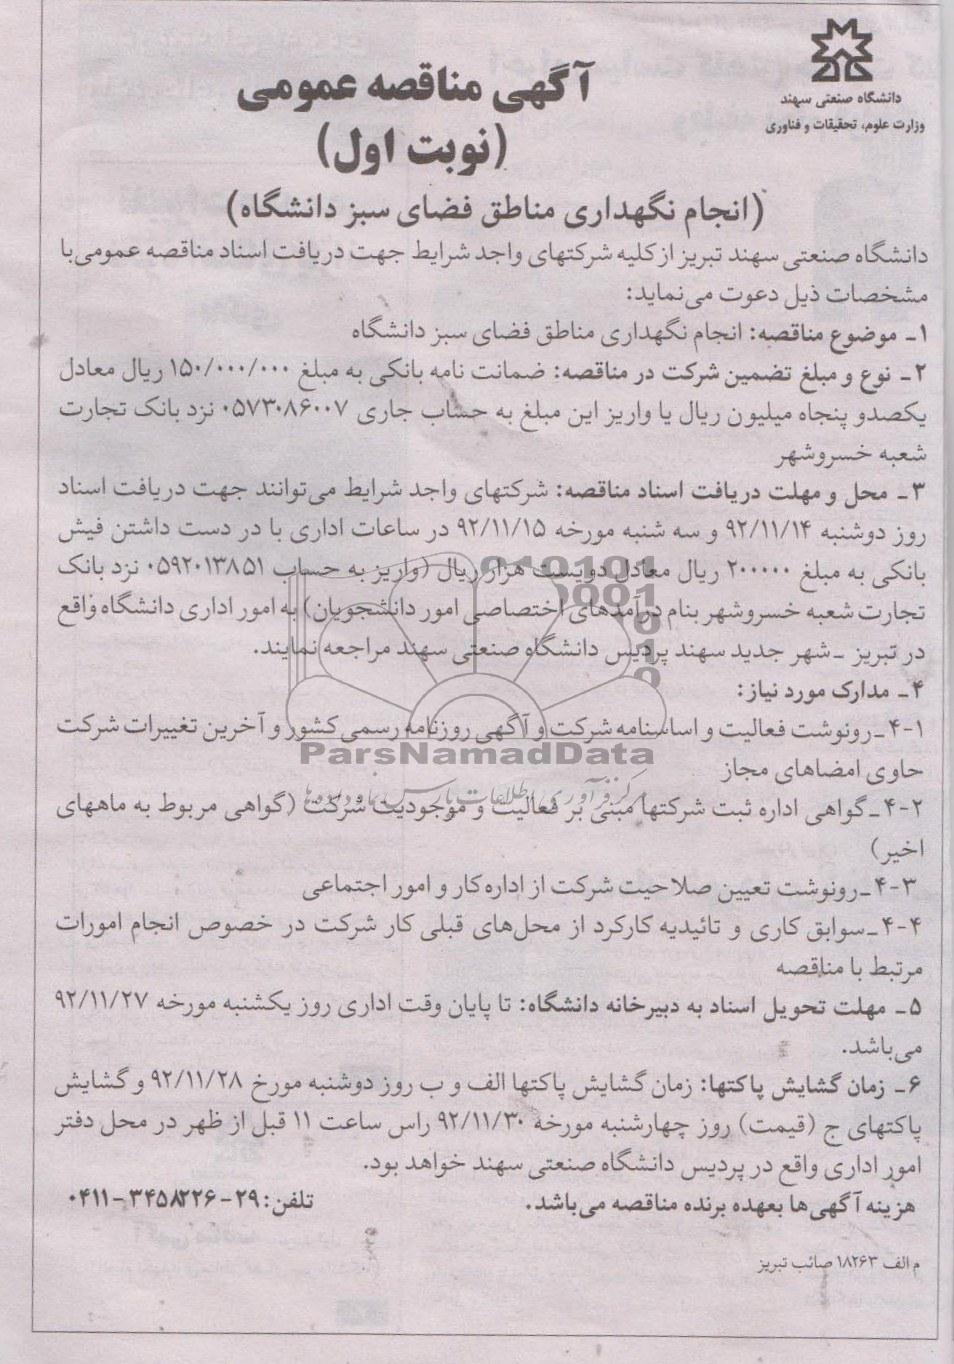 دانشگاه صنعتی سهند
وزارت علوم، تحقیقات و فناوری
آگهی مناقصه عمومی
(نوبت اول)
(انجام نگهداری مناطق فضای سبز دانشگاه)
دانشگاه صنعتی سهند تبریز از کلیه شرکتهای واجد شرایط جهت دریافت اسناد مناقصه عمومی با
مشخصات ذیل دعوت می‌نماید:
۱ـ موضوع مناقصه: انجام نگهداری مناطق فضای سبز دانشگاه
۲ـ نوع و مبلغ تضمین شرکت در مناقصه: ضمانت نامه بانکی به مبلغ ۱۵۰/۰۰۰/۰۰۰ ریال معادل
یکصدو پنجاه میلیون ریال یا واریز این مبلغ به حساب جاری ۰۵۷۳۰۸۶۰۰۷ نزد بانک تجارت
شعبه خسروشهر
۳ـ محل و مهلت دریافت اسناد مناقصه: شرکتهای واجد شرایط می‌توانند جهت دریافت اسناد
روز دوشنبه ۹۲/۱۱/۱۴ و سه شنبه مورخه ۹۲/۱۱/۱۵ در ساعات اداری با در دست داشتن فیش
بانکی به مبلغ ۲۰۰۰۰۰ ریال معادل دویست هزار ریال (واریز به حساب ۰۵۹۲۰۱۳۸۵۱ نزد بانک
تجارت شعبه خسروشهر بنام درآمدهای اختصاصی امور دانشجویان) به امور اداری دانشگاه واقع
در تبریز ـ شهر جدید سهند پردیس دانشگاه صنعتی سهند مراجعه نمایند.
۴ـ مدارک مورد نیاز:
۴-۱ـ رونوشت فعالیت و اساسنامه شرکت و آگهی روزنامه رسمی کشور و آخرین تغییرات شرکت
حاوی امضاهای مجاز
ParsNamadData
مرکز فرآوری اطلاعات پارس نماد داده‌ها
۴-۲ـ گواهی اداره ثبت شرکتها مبنی بر فعالیت و موجودیت شرکت (گواهی مربوط به ماههای
اخیر)
۴-۳ـ رونوشت تعیین صلاحیت شرکت از اداره کار و امور اجتماعی
۴-۴ـ سوابق کاری و تائیدیه کارکرد از محل‌های قبلی کار شرکت در خصوص انجام امورات
مرتبط با مناقصه
۵ـ مهلت تحویل اسناد به دبیرخانه دانشگاه: تا پایان وقت اداری روز یکشنبه مورخه ۹۲/۱۱/۲۷
می‌باشد.
۶ـ زمان گشایش پاکتها: زمان گشایش پاکتها الف و ب روز دوشنبه مورخ ۹۲/۱۱/۲۸ و گشایش
پاکتهای ج (قیمت) روز چهارشنبه مورخه ۹۲/۱۱/۳۰ راس ساعت ۱۱ قبل از ظهر در محل دفتر
امور اداری واقع در پردیس دانشگاه صنعتی سهند خواهد بود.
هزینه آگهی‌ها بعهده برنده مناقصه می‌باشد. تلفن: ۲۹-۳۴۵۸۲۲۶-۰۴۱۱
م الف ۱۸۲۶۳ صائب تبریز